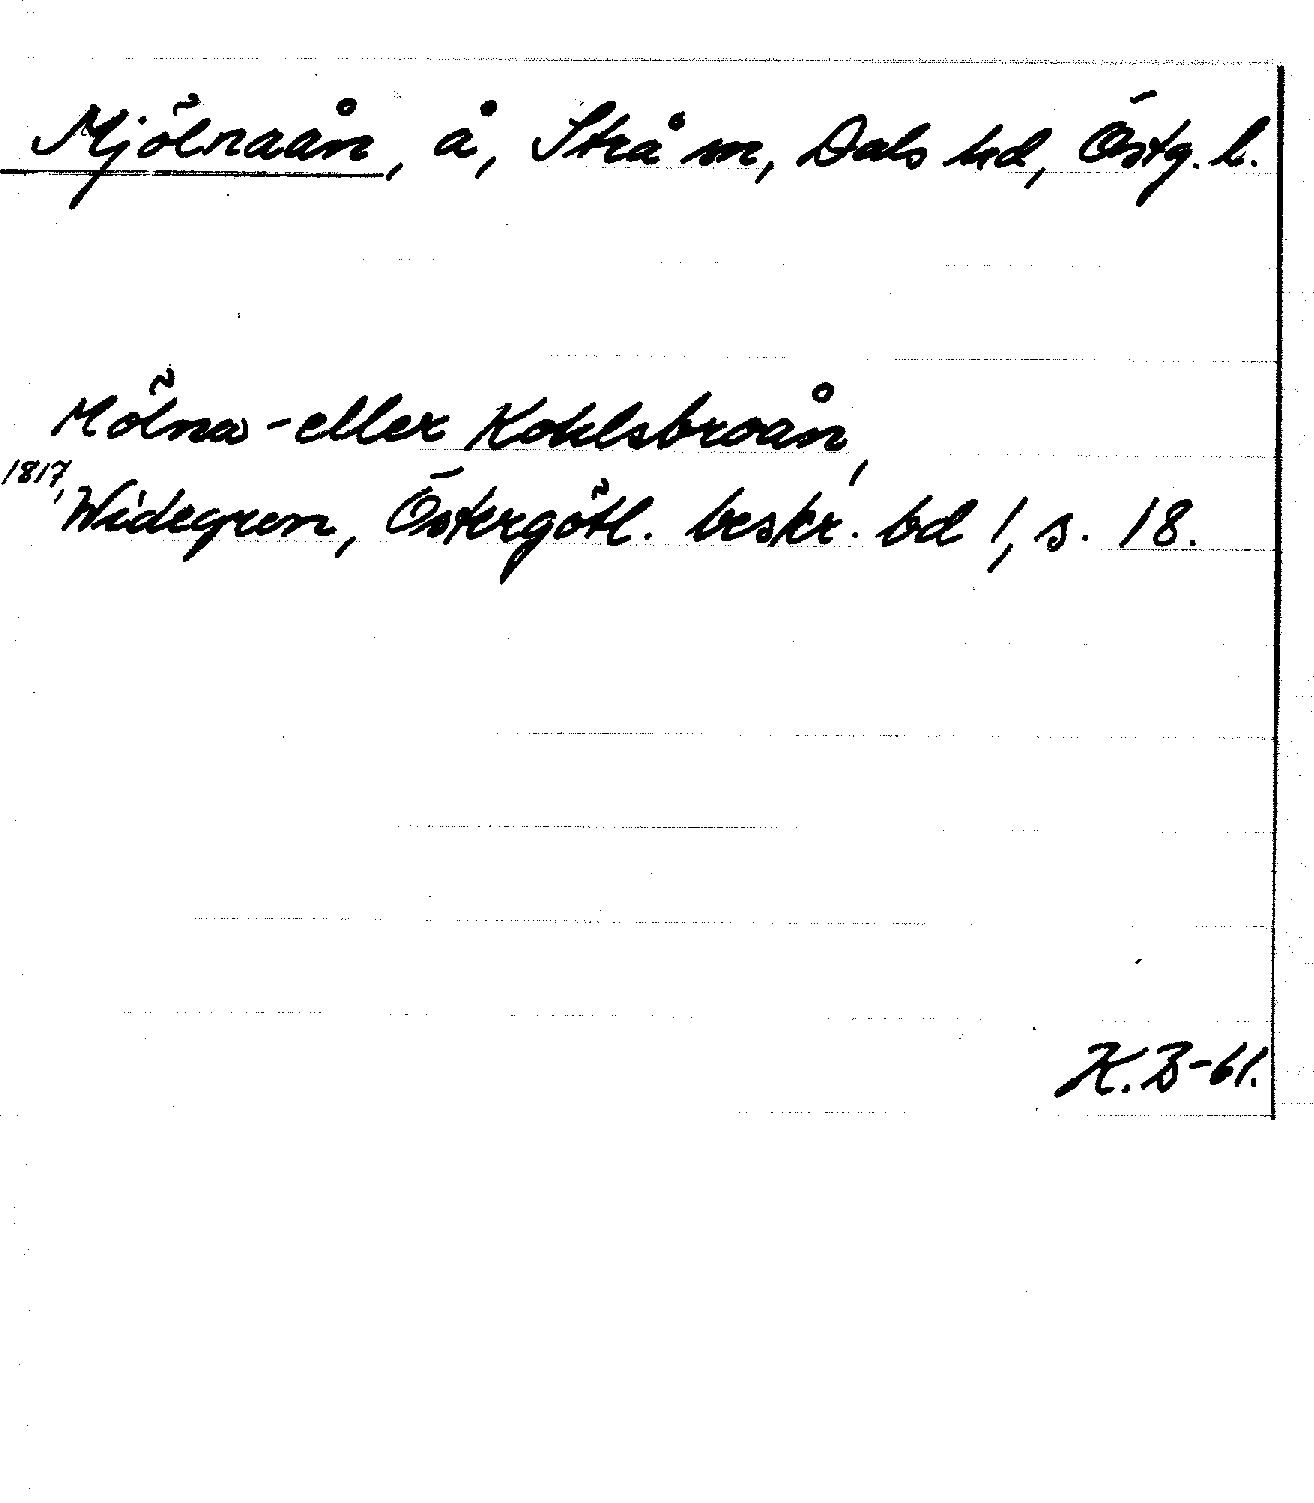 Mjölnaån, å, Strå sn, Dals hd, Östg. l.
Mölna- eller Kohlsbroån,
1817, Widegren, Östergötl. beskr. bd 1, s. 18.
K.B-61.